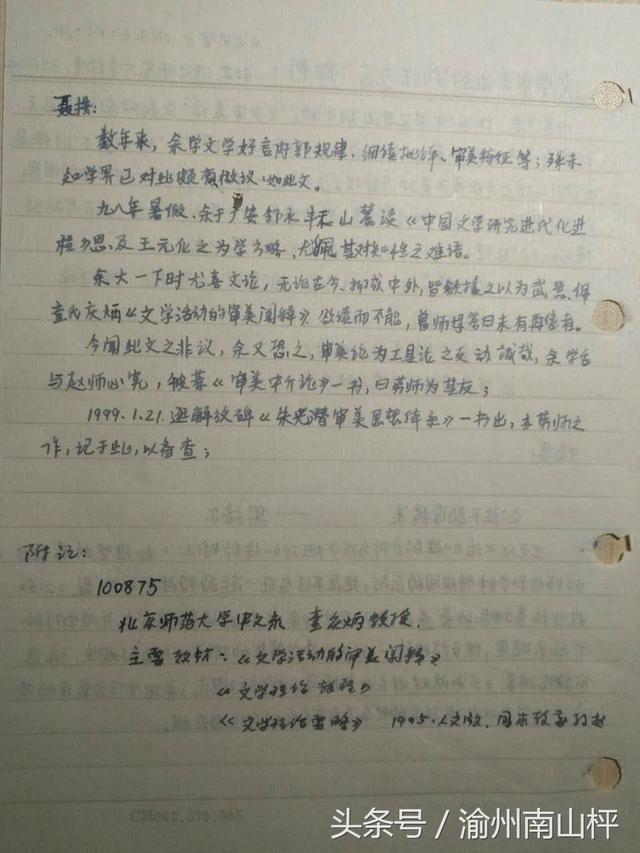 聂按:
数年来,余学文学好言内部规律、细读批评、审美特征等;殊未
知学界已对此颇有微议,如此文。
九八年暑假,余于广安邻水 山麓读《中国文学研究近代化进
程》思及王元化之为学方略,尤佩其对知性之难语。
余大一下时尤喜文论,无论古今,抑或中外,皆 之以为武器,但
童氏庆炳《文学活动的审美阐释》欲读而不能,曾师 答曰未有再售者。
今闻此文之非议,余又恐之,审美论为工具论之反动诚哉,余学台
与赵师心宪,彼著《审美中介论》一书,曰劳师为其友;
1999.1.21.逛解放碑《朱光潜审美思想体系》一书出,亦劳师之
作,记于此,以备查;
附注:
100875
北京师范大学中文系 童庆炳教授.
主要教材:《文学活动的审美阐释》
《文学理论教程》
《文学理论要略》 1995.人文版.
CH002,376,945
头条号/渝州南山枰